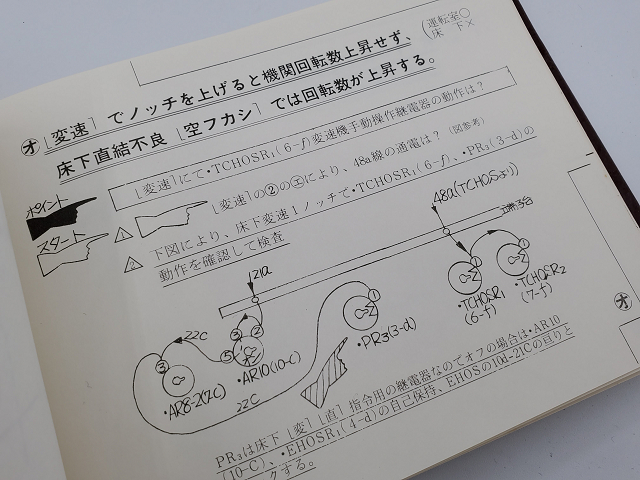 ㋔ ⌊変速⌉でノッチを上げると機関回転数上昇せず、
(運転室○
床 下×
床下直結不良⌊空フカシ⌉では回転数が上昇する。
ポイント
⌊変速⌉にて・TCHOSR₁(6-f)変速機手動操作継電器の動作は?
スタート
1 ⌊変速⌉の②の㋓により、48a線の通電は?(図参考)
2 下図により、床下変速1ノッチで・TCHOSR₁(6-f)、・PR₃(3-d)の
動作を確認して検査
48a(TCHOSより)
21a
22C
③ ②
⑤
①
①
①
③
・TCHOSR₁
(6-f)
・TCHOSR₂
(7-f)
・PR3(3-d)
・AR10(10-C)
・AR8-2(7C)
22C
㋔
PR₃は床下⌊変⌉⌊直⌉指令用の継電器なのでオフの場合は・AR10
(10-C)、・EHOSR₁(4-d)の自己保持、EHOSの10d-21Cの且りと
クする。